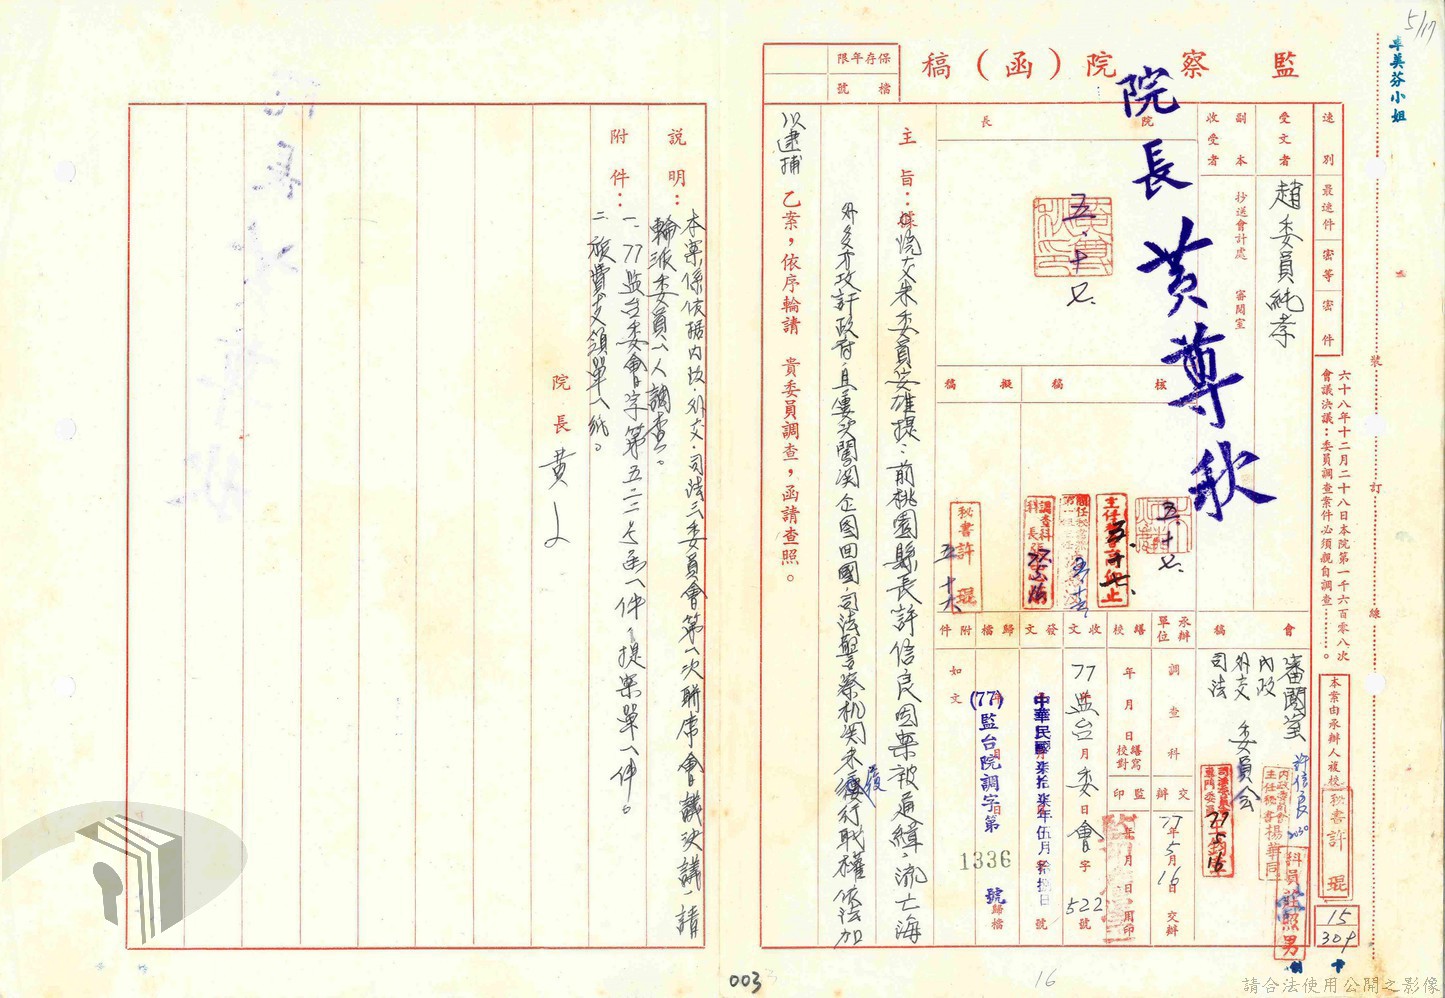 5/17
監察院(函)稿
保存年限
檔號
速別 最速件 密等 密件
受文者 趙委員純孝
副本收受者 抄送會計處 審閱室
院長
院長 黃尊秋
五.十七.
六十八年十二月二十八日本院第一千六百零八次
會議決議:委員調查案件必須親自調查……。
本案由承辦人複校
秘書許琨
15
309
裝
訂
線
核稿
擬稿
五.十七.
秘書許琨
五十六
會稿
審閱室
內政
外交
司法
委員會
許信良
77 5 16
科員
承辦單位 調查科
繕校 年月日 繕寫 校對
交辦 77年5月16日交辦
監印 年月日用印
收文 77 監台委會字 522 號
發文 中華民國柒拾柒年伍月拾捌日
(77)監台院調字第 1336 號
歸檔
附件 如文
主旨:據院交朱委員安雄提:前桃園縣長許信良因案被通緝,流亡海
外多方攻訐政府,且屢次闖関企圖回國,司法警察机関未獲行職權依法加
以逮捕乙案,依序輪請 貴委員調查,函請查照。
說明:本案係依据內政、外交、司法三委員會第一次聯席會議決議:請
輪派委員一人調查。
附件:一、77監台委會字第五二二七函一件、提案單一件。
二、旅費支領單一紙。
院長 黃
003
16
請合法使用公開之影像